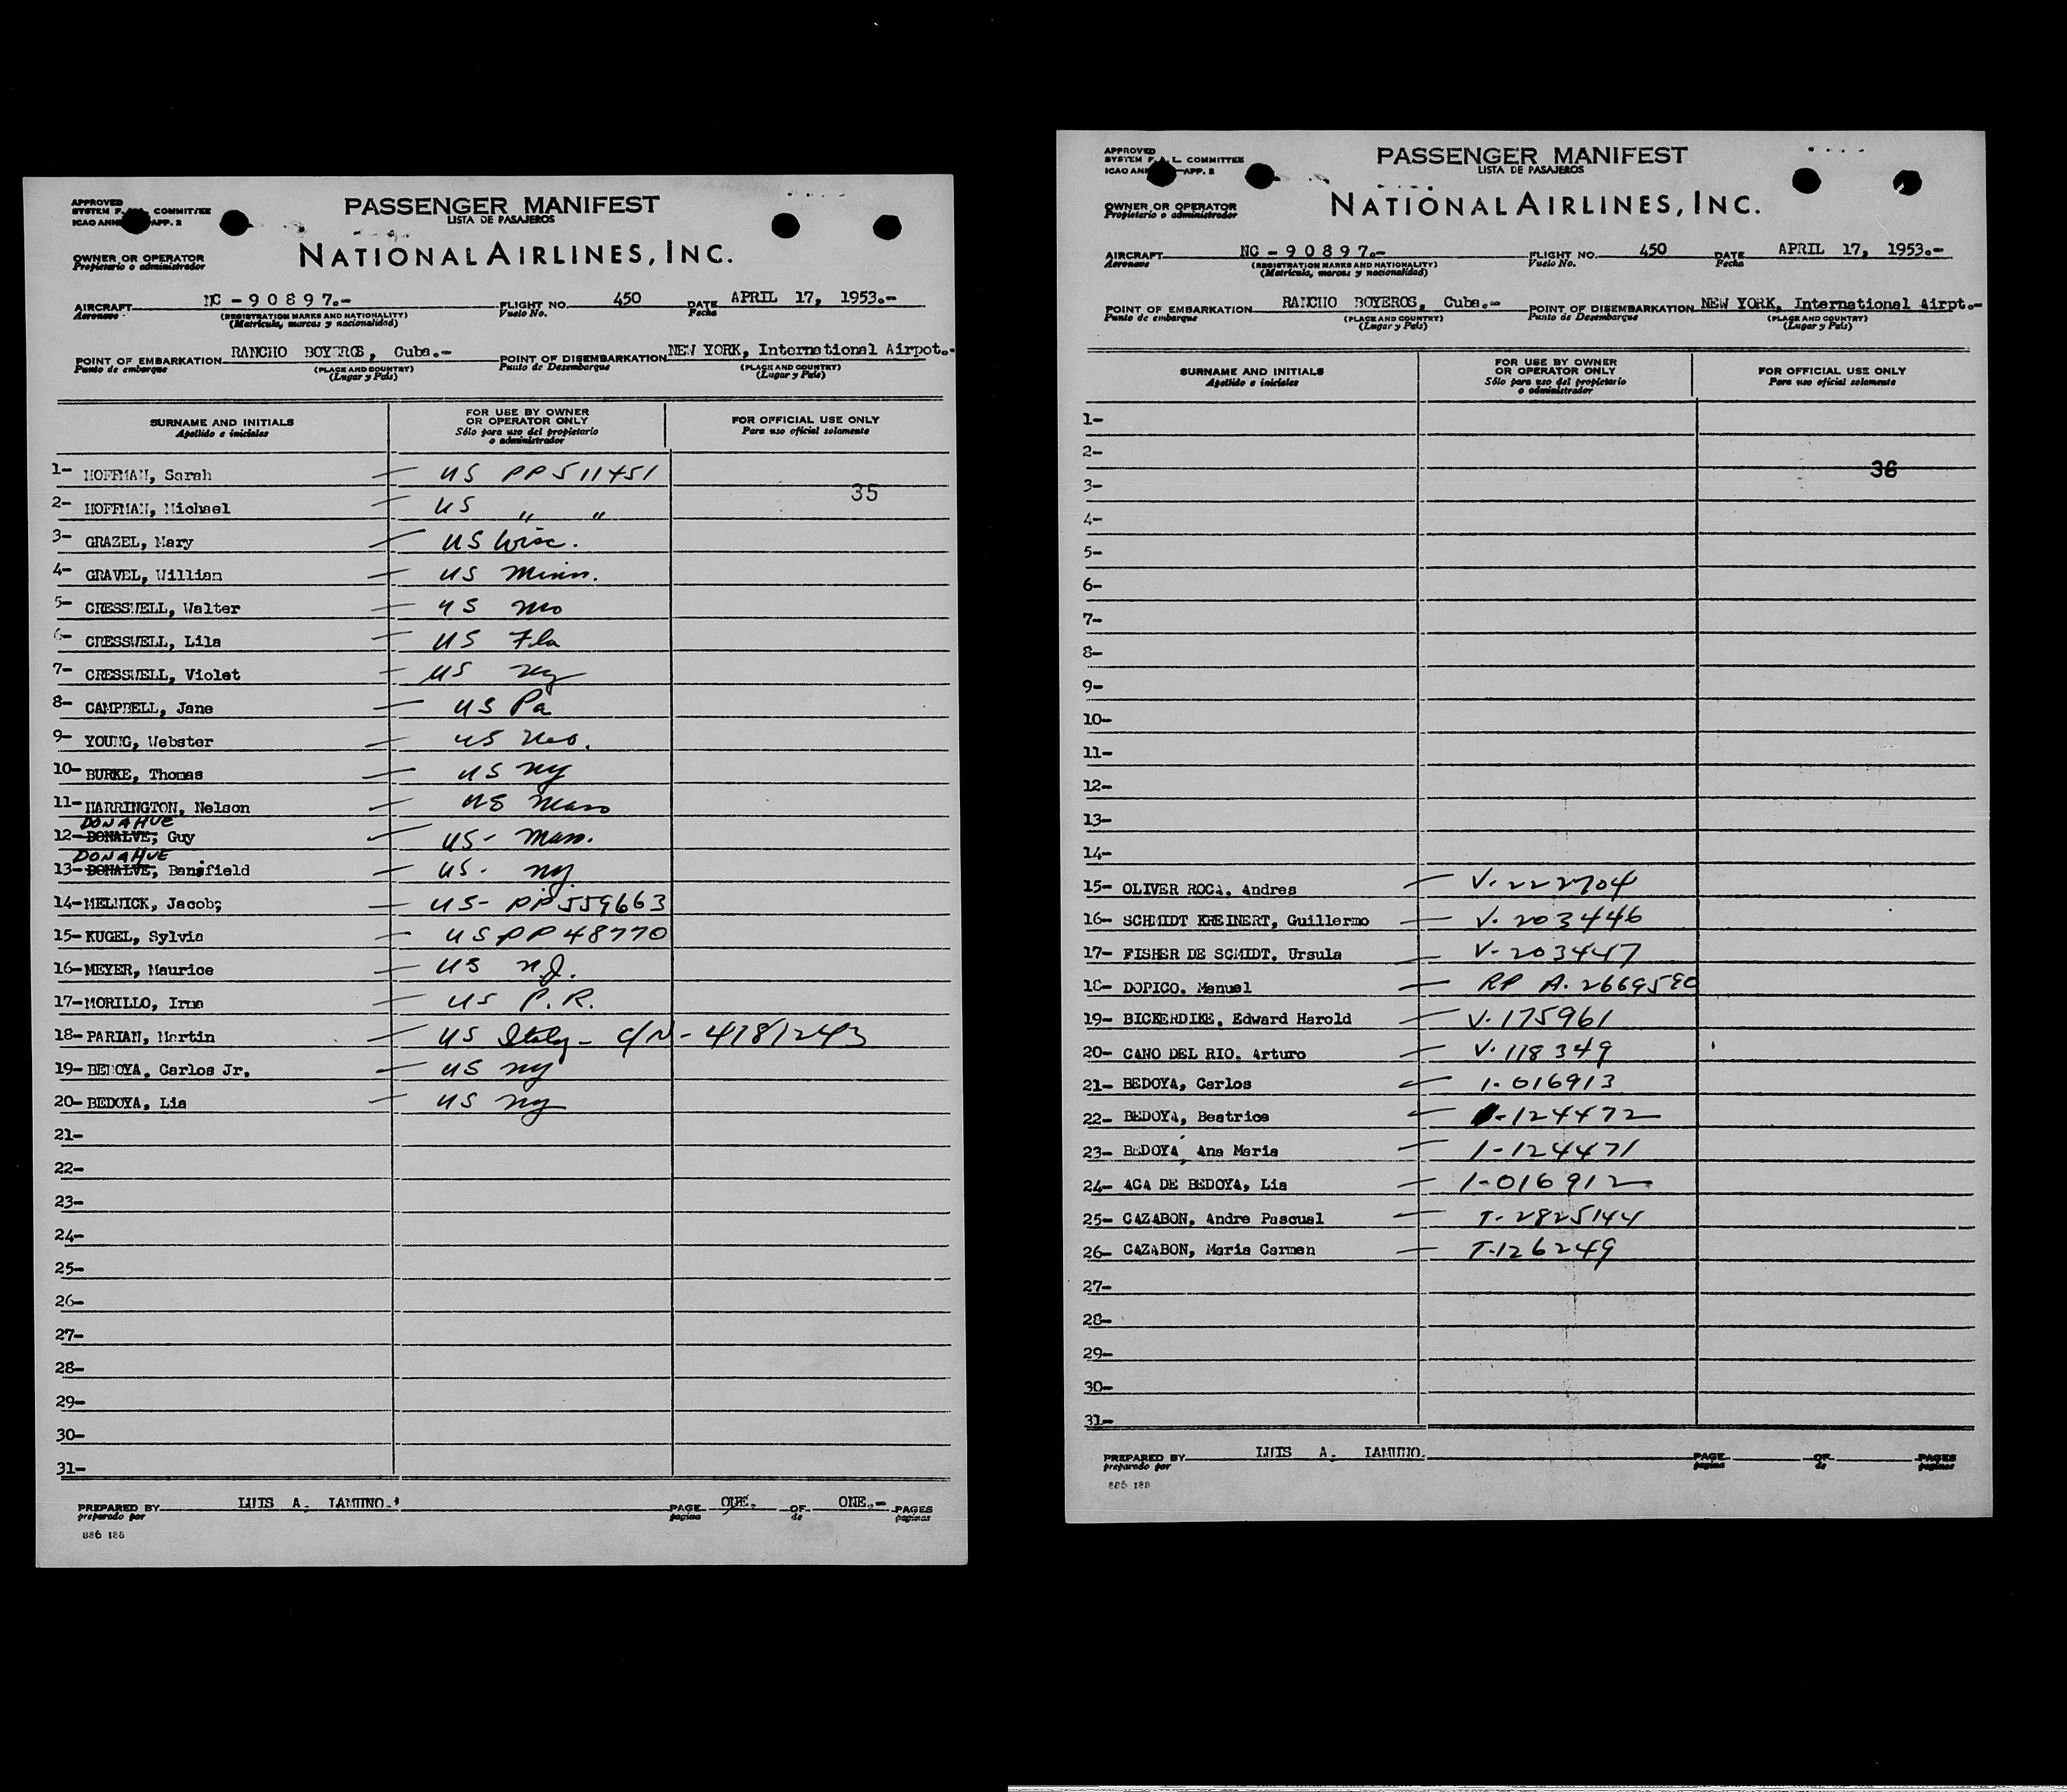 APPROVED
SYSTEM F. COMMITTEE
ICAO ANN APP. 2
PASSENGER MANIFEST
LISTA DE PASAJEROS
OWNER OR OPERATOR
Propietario o administrador
NATIONAL AIRLINES, INC.
AIRCRAFT NC - 9 0 8 9 7.- FLIGHT NO. 450 DATE APRIL 17, 1953.-
Aeronave (REGISTRATION MARKS AND NATIONALITY) Vuelo No. Fecha
(Matricula, marcas y nacionalidad)
POINT OF EMBARKATION RANCHO BOYEROS, Cuba.- POINT OF DISEMBARKATION NEW YORK, International Airpot.-
Punto de embarque (PLACE AND COUNTRY) Punto de Desembarque (PLACE AND COUNTRY)
(Lugar y País) (Lugar y País)
SURNAME AND INITIALS
Apellido e iniciales
FOR USE BY OWNER
OR OPERATOR ONLY
Sólo para uso del propietario
o administrador
FOR OFFICIAL USE ONLY
Para uso oficial solamente
1- HOFFMAN, Sarah — US PP 511451
35
2- HOFFMAN, Michael — US " "
3- GRAZEL, Mary — US Wisc.
4- GRAVEL, Willian — US Minn.
5- CRESSWELL, Walter — US Mo
6- CRESSWELL, Lila — US Fla
7- CRESSWELL, Violet — US Ny
8- CAMPBELL, Jane — US Pa
9- YOUNG, Webster — US
10- BURKE, Thomas — US ny
11- HARRINGTON, Nelson — US Mass
DONAHUE
12- DONALVE, Guy — US- Mass.
DONAHUE
13- DONALVE, Bansfield — US- ny.
14- MELNICK, Jacob; — US- PP 559663
15- KUGEL, Sylvia — US PP 48770
16- MEYER, Maurice — US N.J.
17- MORILLO, Irma — US P.R.
18- PARIAN, Martin — US Italy - C/N - 4181243
19- BEDOYA, Carlos Jr. — US ny
20- BEDOYA, Lia — US ny
21-
22-
23-
24-
25-
26-
27-
28-
29-
30-
31-
PREPARED BY LUIS A. LAMUNO. PAGE ONE. OF ONE.- PAGES
preparado por pagina de paginas
886 188
APPROVED
SYSTEM F. A. L. COMMITTEE
ICAO ANN APP. 2
PASSENGER MANIFEST
LISTA DE PASAJEROS
OWNER OR OPERATOR
Propietario o administrador
NATIONAL AIRLINES, INC.
AIRCRAFT NC - 9 0 8 9 7.- FLIGHT NO. 450 DATE APRIL 17, 1953.-
Aeronave (REGISTRATION MARKS AND NATIONALITY) Vuelo No. Fecha
(Matricula, marcas y nacionalidad)
POINT OF EMBARKATION RANCHO BOYEROS, Cuba.- POINT OF DISEMBARKATION NEW YORK, International Airpt.-
Punto de embarque (PLACE AND COUNTRY) Punto de Desembarque (PLACE AND COUNTRY)
(Lugar y País) (Lugar y País)
SURNAME AND INITIALS
Apellido e iniciales
FOR USE BY OWNER
OR OPERATOR ONLY
Sólo para uso del propietario
o administrador
FOR OFFICIAL USE ONLY
Para uso oficial solamente
1-
2-
36
3-
4-
5-
6-
7-
8-
9-
10-
11-
12-
13-
14-
15- OLIVER ROCA, Andres — V-222704
16- SCHMIDT KREINERT, Guillermo — V-203446
17- FISHER DE SCMIDT, Ursula — V-203447
18- DOPICO. Manuel — RP A-2669590
19- BICKERDIKE, Edward Harold — V-175961
20- CANO DEL RIO, Arturo — V-118349
21- BEDOYA, Carlos — 1-016913
22- BEDOYA, Beatrice — 1-124472
23- BEDOYA, Ana Maria — 1-124471
24- AGA DE BEDOYA, Lia — 1-016912
25- CAZABON, Andre Pascual — T-2825144
26- CAZABON, Maria Carmen — T-126249
27-
28-
29-
30-
31-
PREPARED BY LUIS A. LAMUNO. PAGE OF PAGES
preparado por pagina de paginas
886 188